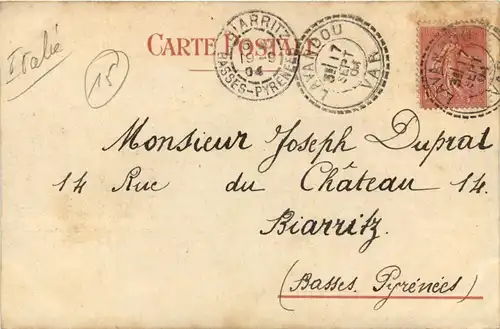 Italie
15
CARTE POSTALE
BIARRITZ
19-9
04
BASSES-PYRENEES
LAVANDOU
17
SEPT
04
VAR
LAVANDOU
Monsieur Joseph Duprat
14 Rue du Château 14.
Biarritz
(Basses. Pyrénées)